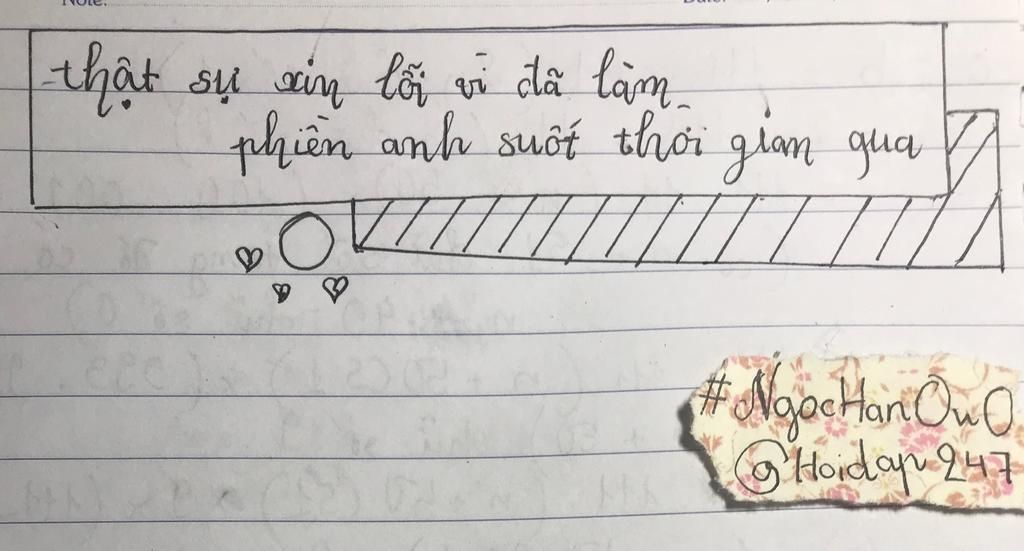 Note:
thật sự xin lỗi vì đã làm
phiền anh suốt thời gian qua
#NgocHanOwO
@Hoidap247